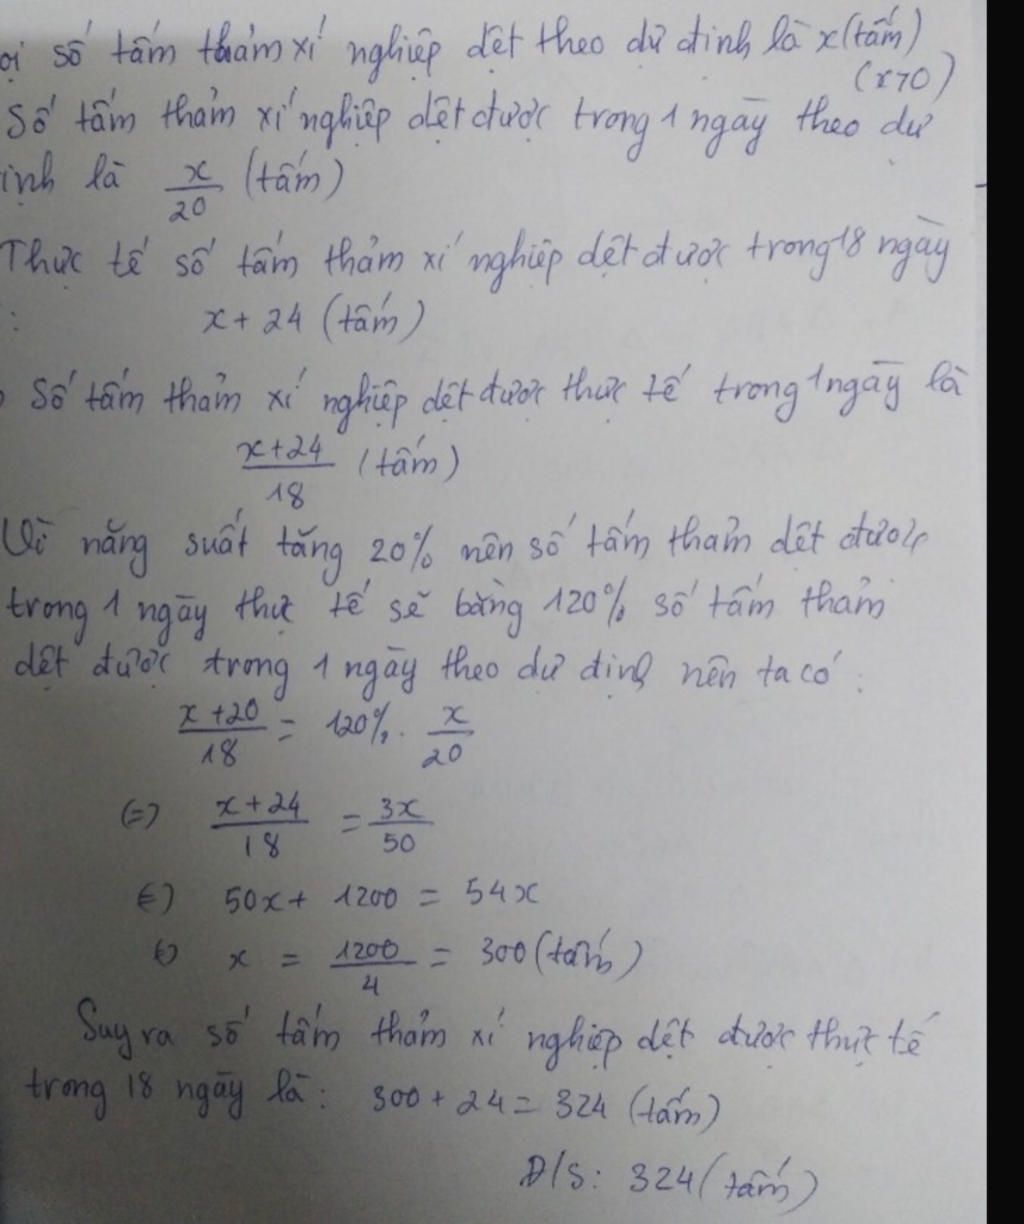 ọi số tấm thảm xí nghiệp dệt theo dự định là x (tấm)
(x>0)
Số tấm thảm xí nghiệp dệt được trong 1 ngày theo dự
ịnh là x/20 (tấm)
Thực tế số tấm thảm xí nghiệp dệt được trong 18 ngày
: x + 24 (tấm)
Số tấm thảm xí nghiệp dệt được thực tế trong 1 ngày là
(x+24)/18 (tấm)
Vì năng suất tăng 20% nên số tấm thảm dệt được
trong 1 ngày thực tế sẽ bằng 120% số tấm thảm
dệt được trong 1 ngày theo dự định nên ta có :
(x+20)/18 = 120% . x/20
(=) (x+24)/18 = 3x/50
(=) 50x + 1200 = 54x
(=) x = 1200/4 = 300 (tấm)
Suy ra số tấm thảm xí nghiệp dệt được thực tế
trong 18 ngày là : 300 + 24 = 324 (tấm)
Đ/S : 324 (tấm)